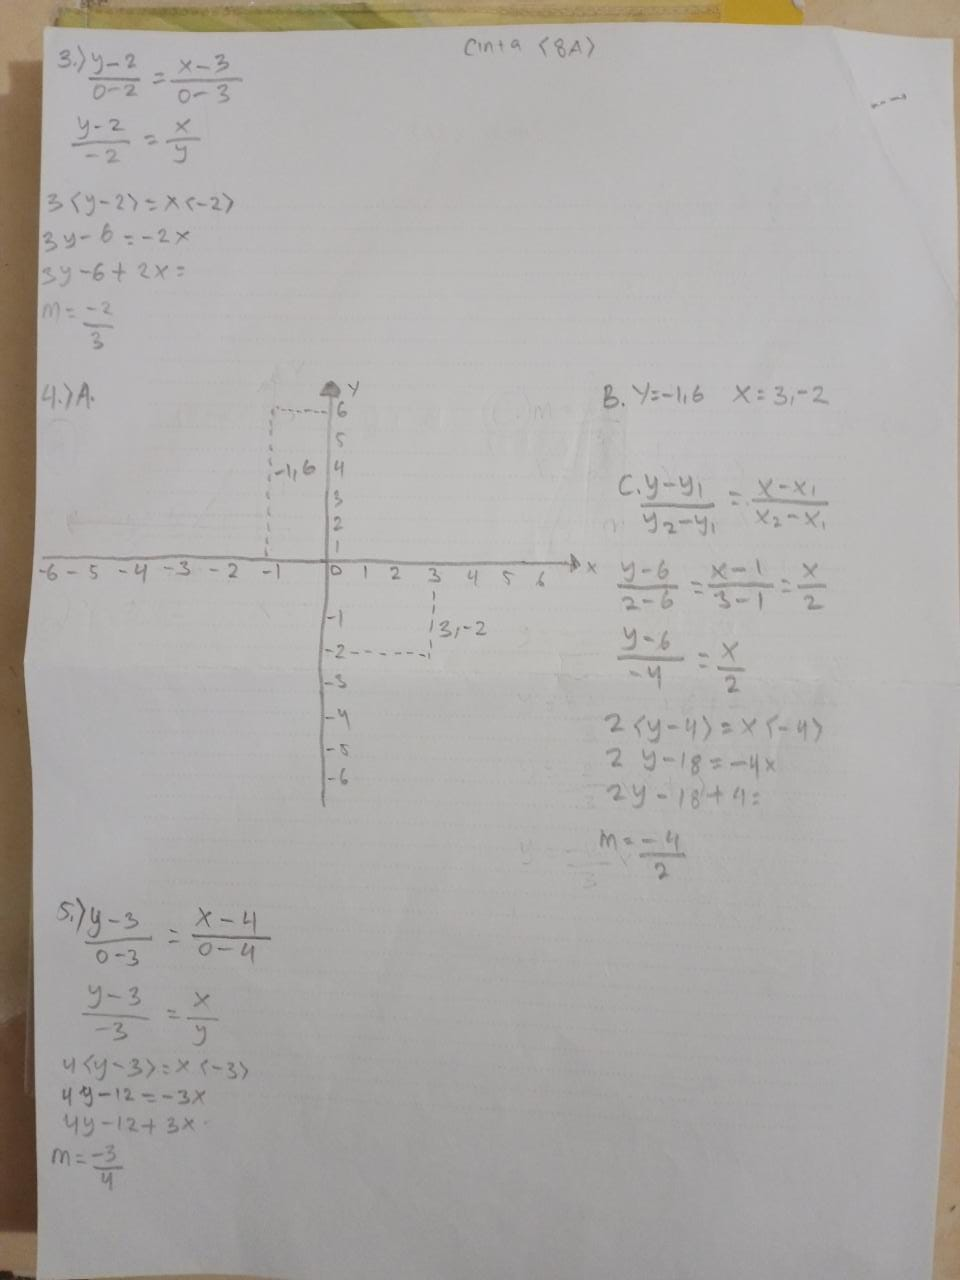 Cinta (8A)
3.) y-2/0-2 = x-3/0-3
y-2/-2 = x/y
3(y-2)=x(-2)
3y-6=-2x
3y-6+2x=
m=-2/3
4.) A.
Y
6
5
-1,6 4
3
2
1
-6 -5 -4 -3 -2 -1 0 1 2 3 4 5 6 X
-1
3,-2
-2
-3
-4
-5
-6
B. Y=-1,6 X=3,-2
C. y-y1/y2-y1 = x-x1/x2-x1
y-6/2-6 = x-1/3-1 = x/2
y-6/-4 = x/2
2(y-4)=x(-4)
2y-18=-4x
2y-18+4=
m=-4/2
5.) y-3/0-3 = x-4/0-4
y-3/-3 = x/y
4(y-3)=x(-3)
4y-12=-3x
4y-12+3x
m=-3/4